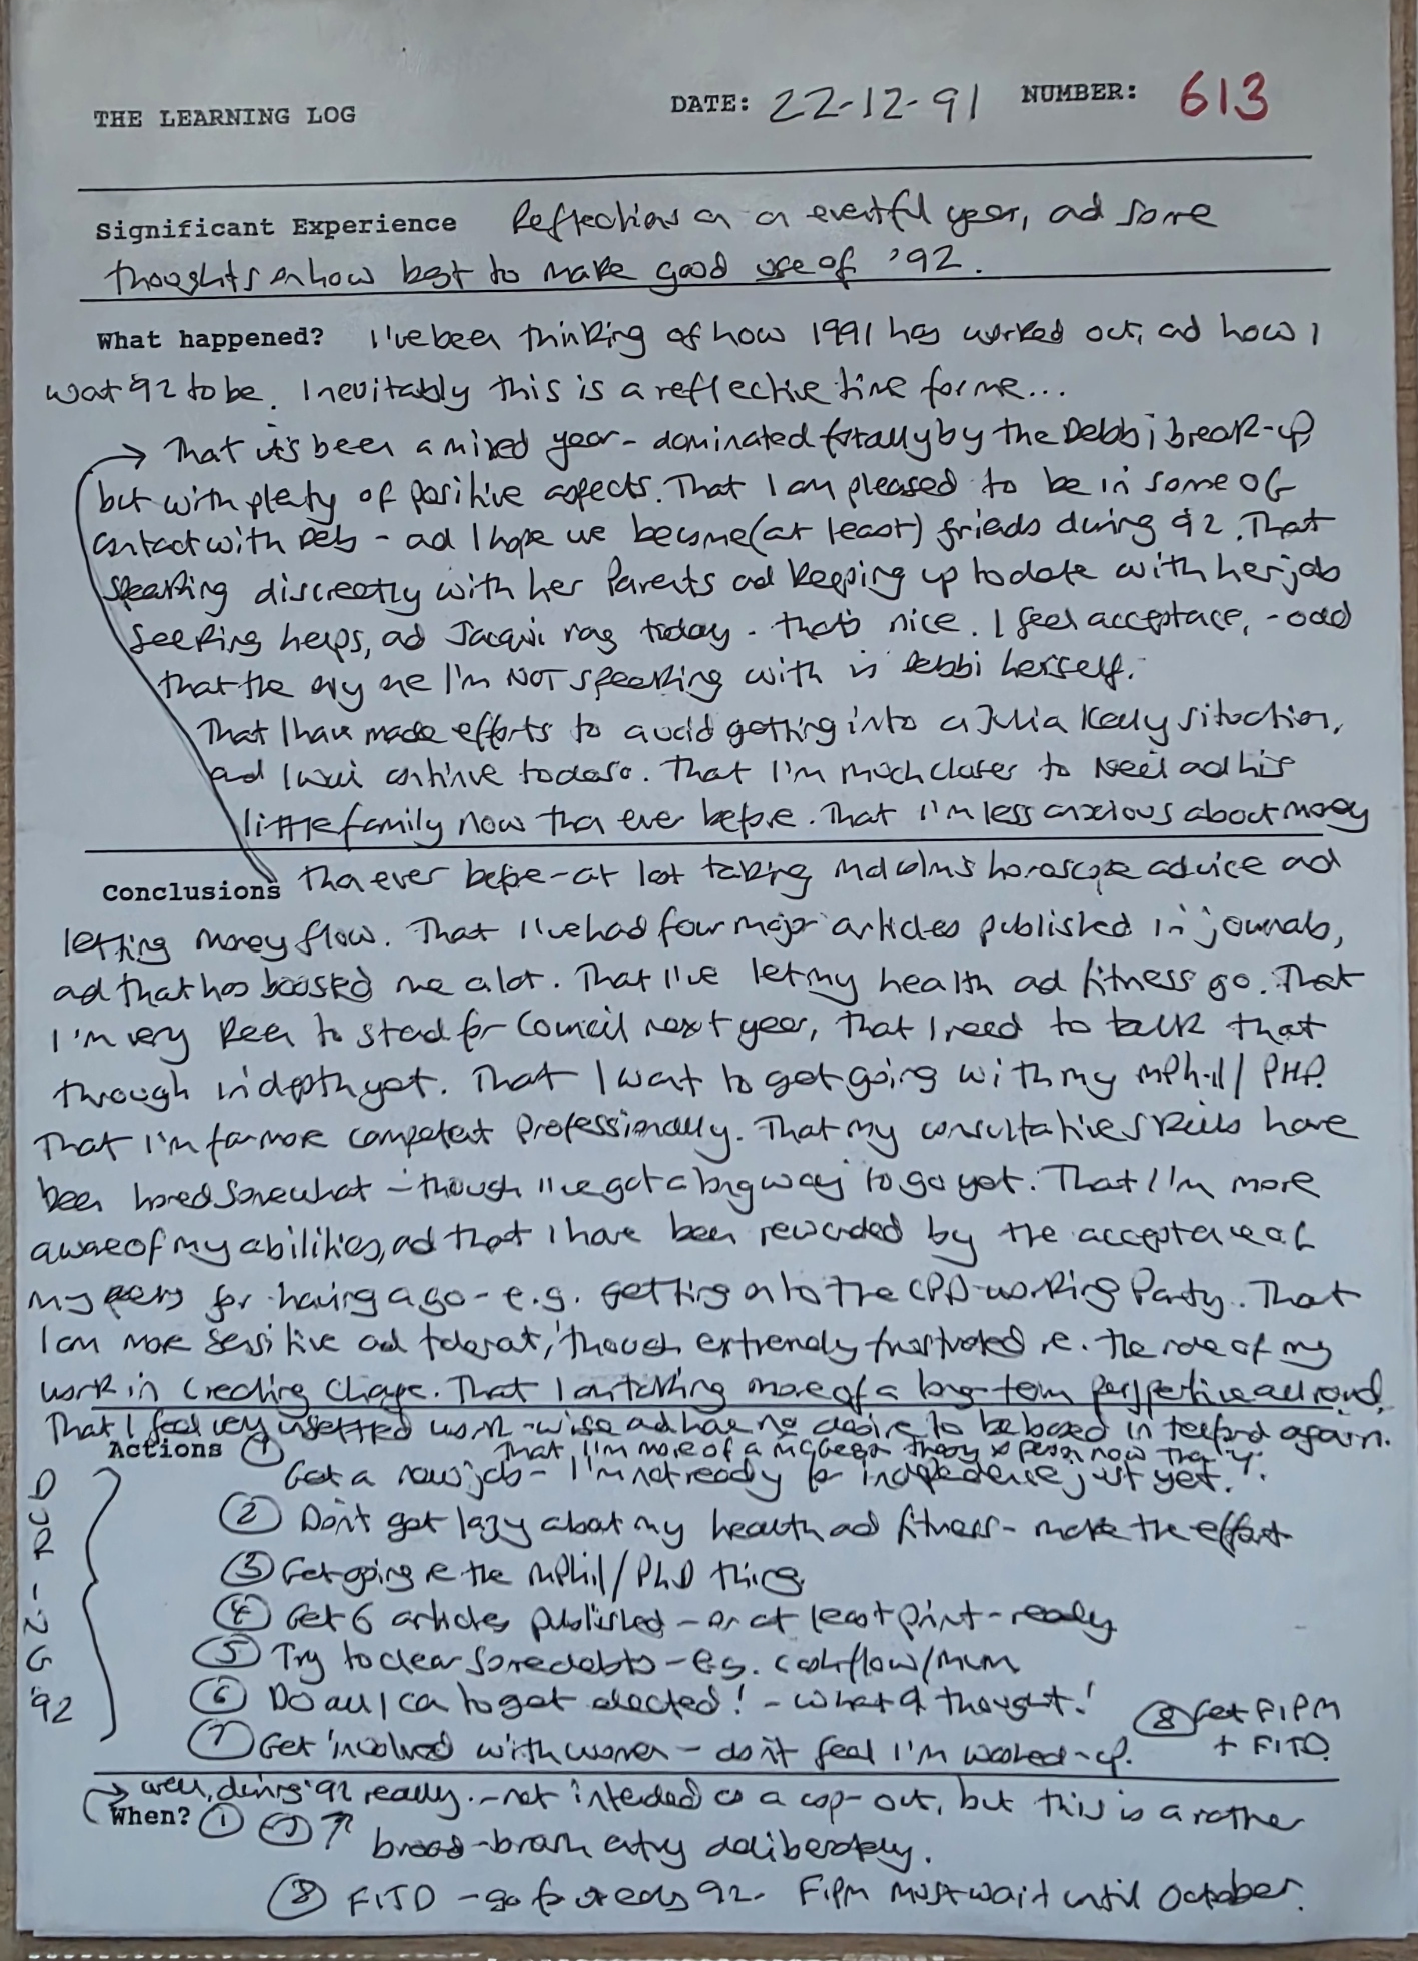 THE LEARNING LOG DATE: 22-12-91 NUMBER: 613
Significant Experience Reflections on an eventful year, and some
thoughts on how best to make good use of '92.
What happened? I've been thinking of how 1991 has worked out, and how I
want '92 to be. Inevitably this is a reflective time for me...
→ That it's been a mixed year - dominated totally by the Debbi break-up
but with plenty of positive aspects. That I am pleased to be in some
contact with Debs - and I hope we become (at least) friends during 92. That
speaking discreetly with her Parents and keeping up to date with her job
seeking helps, and Jacqui rang today - that's nice. I feel acceptance, - odd
that the only one I'm NOT speaking with is Debbi herself.
That I have made efforts to avoid getting into a Julia Kelly situation,
and I will continue to do so. That I'm much closer to Neil and his
little family now than ever before. That I'm less anxious about money
Conclusions than ever before - at last taking Malcolm's horoscope advice and
letting money flow. That I've had four major articles published in journals,
and that has boosted me a lot. That I've let my health and fitness go. That
I'm very keen to stand for Council next year, that I need to talk that
through in depth yet. That I want to get going with my MPhil / PHD.
That I'm far more competent professionally. That my consultative skills have
been honed somewhat - though I've got a long way to go yet. That I'm more
aware of my abilities, and that I have been rewarded by the acceptance of
my peers for having a go - e.g. getting onto the CPD working Party. That
I am more sensitive and tolerant, though extremely frustrated re. the role of my
work in creating change. That I am taking more of a long-term perspective all round.
That I feel very unsettled work-wise and have no desire to be based in Telford again.
That I'm more of a McGregor theory X person now than Y.
Actions ① Get a new job - I'm not ready for independence just yet.
② Don't get lazy about my health and fitness - make the effort
③ Get going re the MPhil / PhD thing
④ Get 6 articles published - or at least print-ready
⑤ Try to clear some debts - e.g. cashflow/mum
⑥ Do all I can to get elected! - what a thought!
⑦ Get involved with women - don't feel I'm washed-up.
⑧ Get FIPM
+ FITD.
DURING '92
→ well, during '92 really - not intended as a cop-out, but this is a rather
When? ① ⑦ ↗ broad-brush entry deliberately.
⑧ FITD - go for it early 92. FIPM must wait until October.